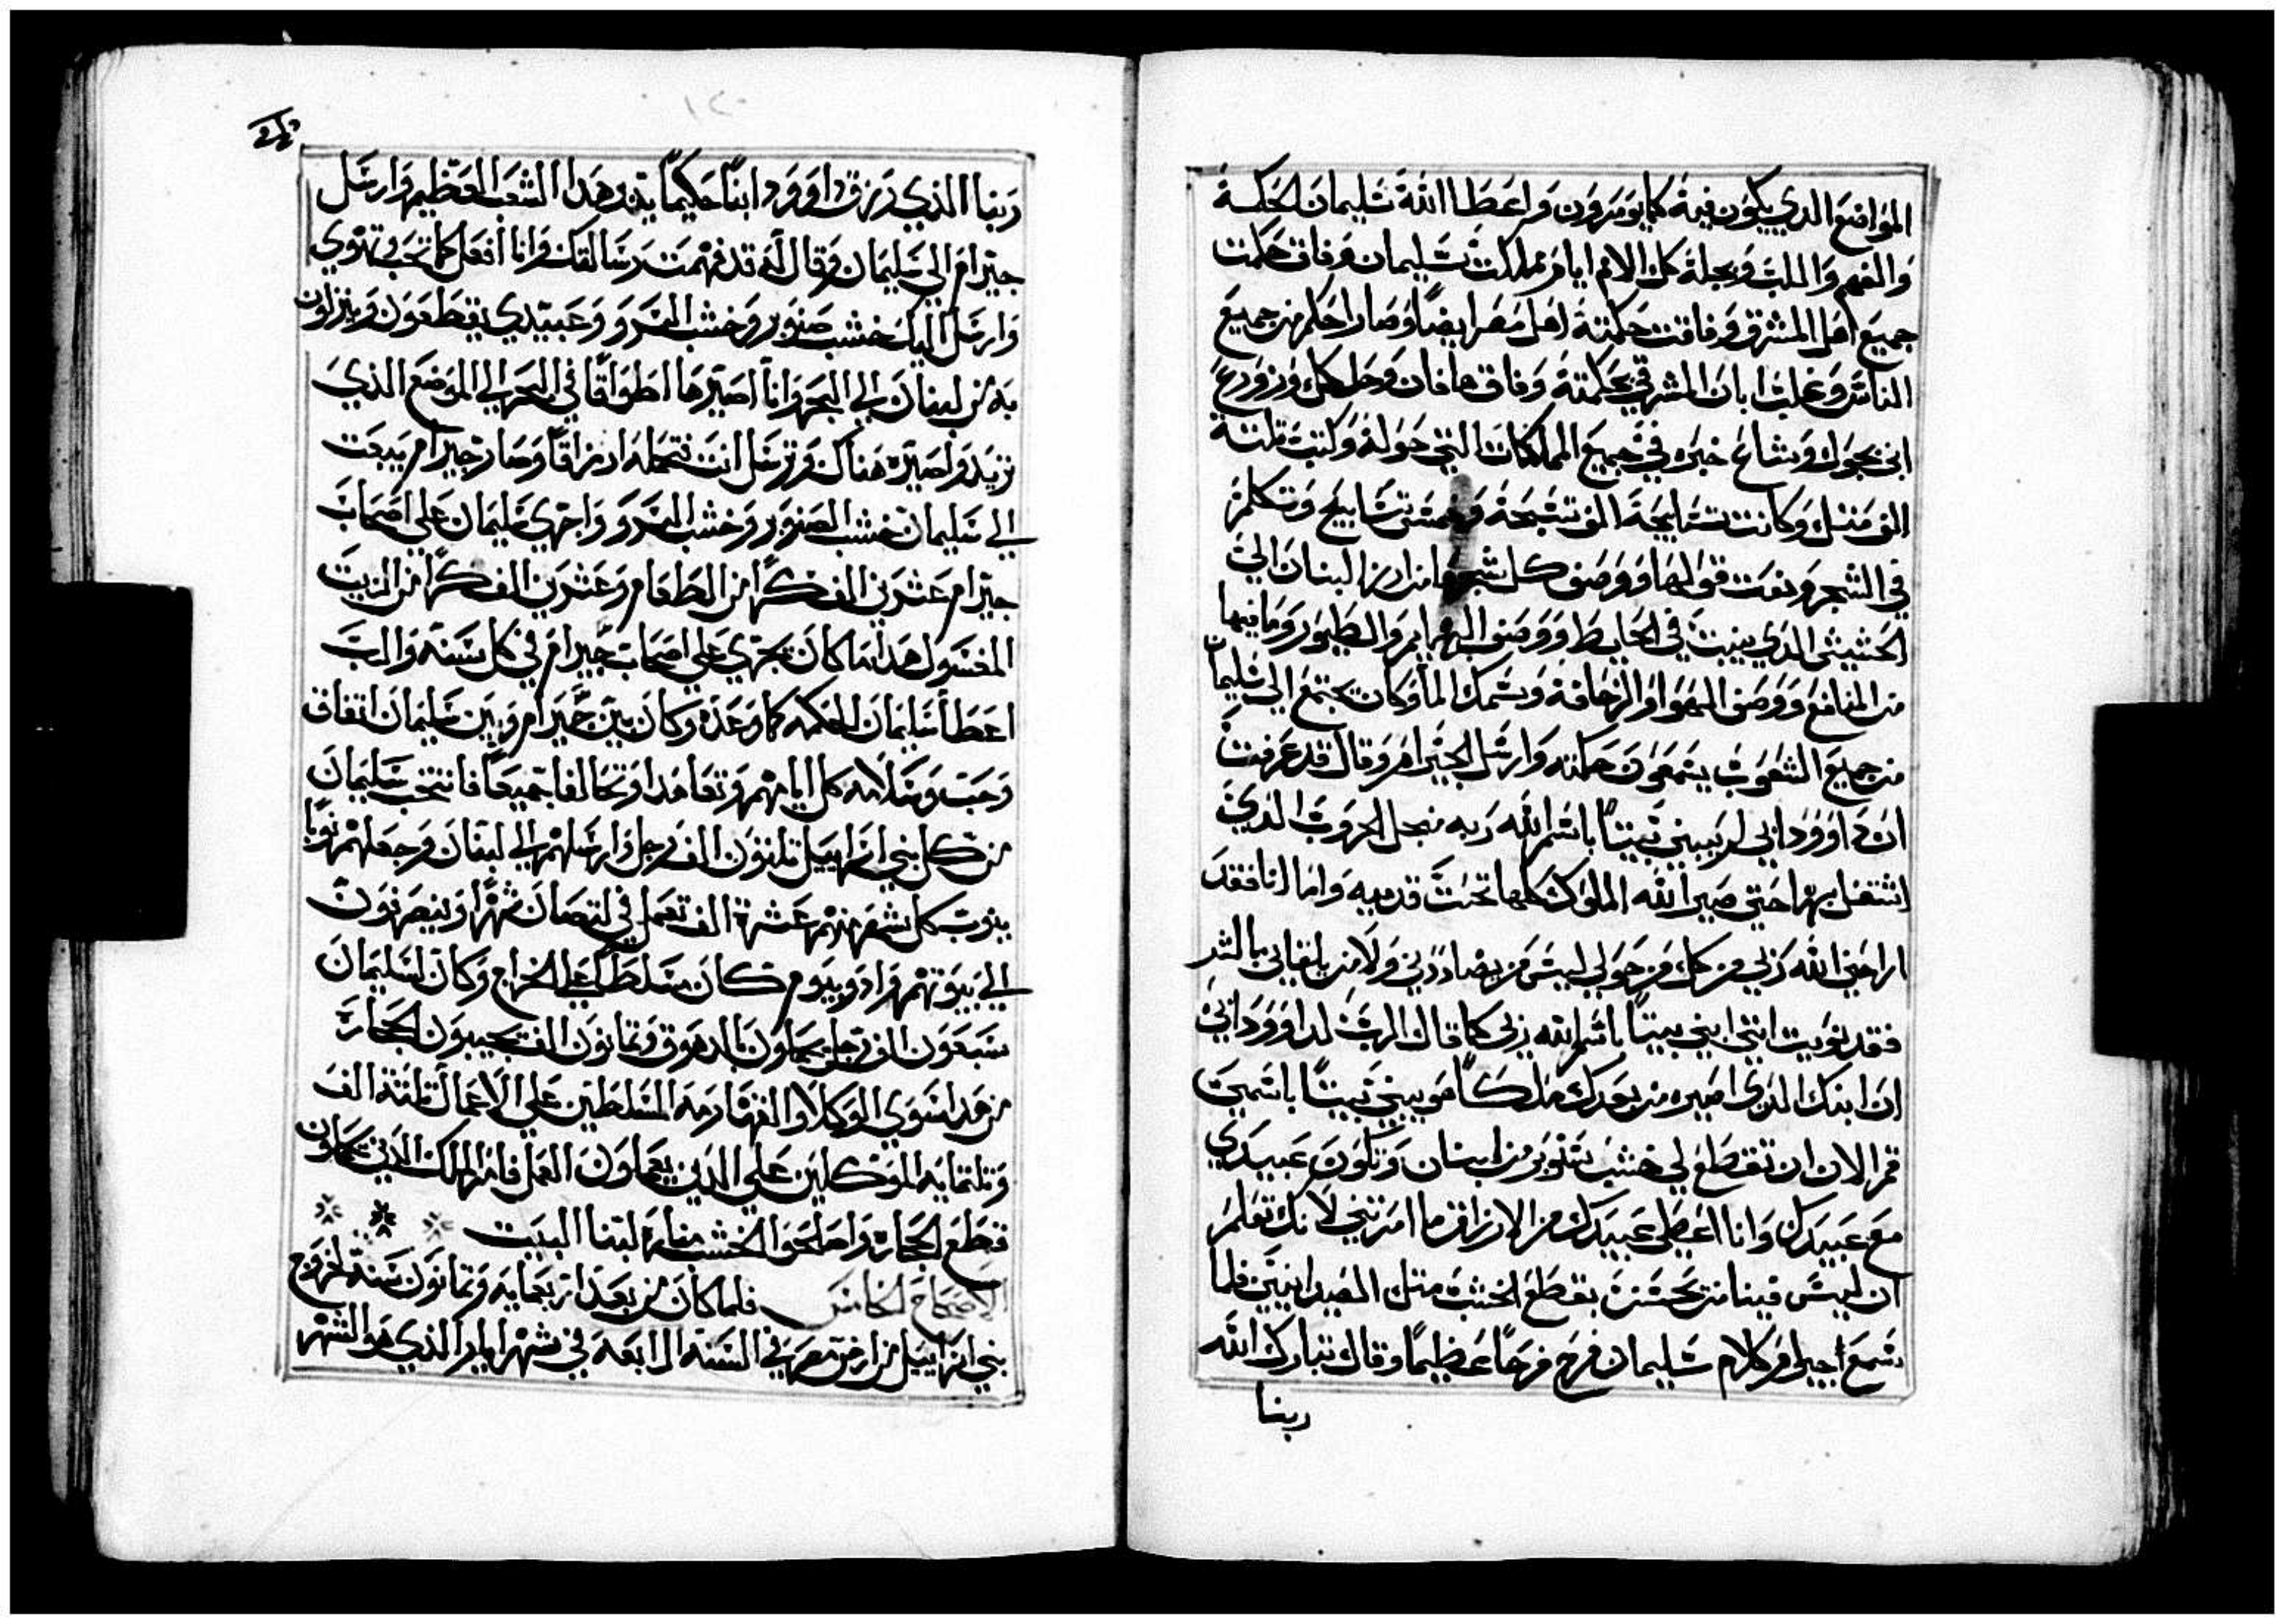 المواضع الدي يكون فيه كما يومرون واعطا الله سليمان الحكمة
والفهم واللب وبجلة كل الامم ايام مملكت سليمان وفاق حكمت
جميع اهل المشرق وفاقت حكمته اهل مصر ايضًا وصار احكم من جميع
الناس وغلب ابان المشرقي بحكمته وفاق هافان وحل كل ودروع
ابني بحول وشاع خبره في جميع المملكات التي حوله وكتب تلتة
الف متل وكانت تسابيحه الف تسبحة وخمس تسابيح وتكلم
في الشجر ونعت قولها ووصف كل شجرها من ارز لبنان الي
الحشيش الدي ينبت في الحايط ووصف البهايم والطيور وما فيها
من المنافع ووصف الهوا والزحافة وسمك الما وكان يجتمع الي سليمان
من جميع الشعوب يسمعون حكمته وارسل الي حيرام وقال قد عرفت
ان داوود ابي لم يبني بيتًا باسم الله ربه من اجل الحروب الذي
اشتغل بها حتي صير الله الملوك كلها تحت قدميه واما انا فقد
اراحني الله ربي من كل من حولي ليس من يضاددني ولا من يلقاني بالشر
فقد نويت انني ابني بيتًا باسم الله ربي كما قال الرب لداوود ابي
ان ابنك الدي اصيره من بعدك ملكًا هو يبني بيتًا باسمي
فمر الان ان تقطع لي خشب صنوبر من لبنان وتكون عبيدي
مع عبيدك وانا اعطي عبيدك من الارزاق ما امرتني لانك تعلم
ان ليس فينا من يحسن يقطع الخشب متل الصيدانيين فلما
سمع احيرام كلام سليمان فرح فرحًا عظيمًا وقال تبارك الله
ربنا
١٢٠
ربنا الذي رزق داوود ابنًا حكيمًا يدبر هدا الشعب العظيم وارسل
حيرام الي سليمان وقال له قد فهمت رسالتك وانا افعل كما تحب وتهوي
وارسل اليك خشب صنوبر وخشب السرو وعبيدي يقطعون وينزلون
به من لبنان الي البحر وانا اصيرها اطواقًا في البحر الي الموضع الذي
تريد واصيره هناك وترسل انت فتحمله ارزاقًا وصار حيرام يبعت
الي سليمان خشب الصنوبر وخشب السرو واجري سليمان علي اصحاب
حيرام عشرين الف كرًا من الطعام وعشرين الف كرًا من الزيت
المغسول هدا ما كان يجري علي اصحاب حيرام في كل سنه والرب
اعطا سليمان الحكمه كما وعده وكان بين حيرام وبين سليمان اتفاق
وحب وسلامه كل ايامهم وتعاهدا وتحالفا جميعًا فانتخب سليمان
من كل بني اسراييل تلتون الف رجل وارسلهم الي لبنان وجعلهم نوبًا
ينوب كل شهر منهم عشرة الف تعمل في لبنان شهرًا وينصرفون
الي بيوتهم وادونيرم كان مسلط علي الخراج وكان لسليمان
سبعون الف رجل يحملون بالدهوق وتمانون الف يجيبون الحجاره
من عدا سوي الوكلا والقهارمه المسلطين علي الاعمال تلتة الف
وتلتمايه الموكلين علي الدين يعملون العمل فامر الملك الدين يعملون
قطع الحجاره واصلحوا الخشب لبنا البيت
الاصحاح الخامس فلما كان من بعد اربعمايه وتمانون سنة لخروج
بني اسراييل من ارض مصر في السنه الرابعه في شهر ايار الذي هو الشهر